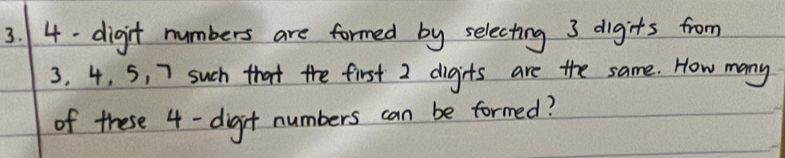 3. 4 - digit numbers are formed by selecting 3 digits from
3, 4, 5, 7 such that the first 2 digits are the same. How many
of these 4 - digit numbers can be formed?